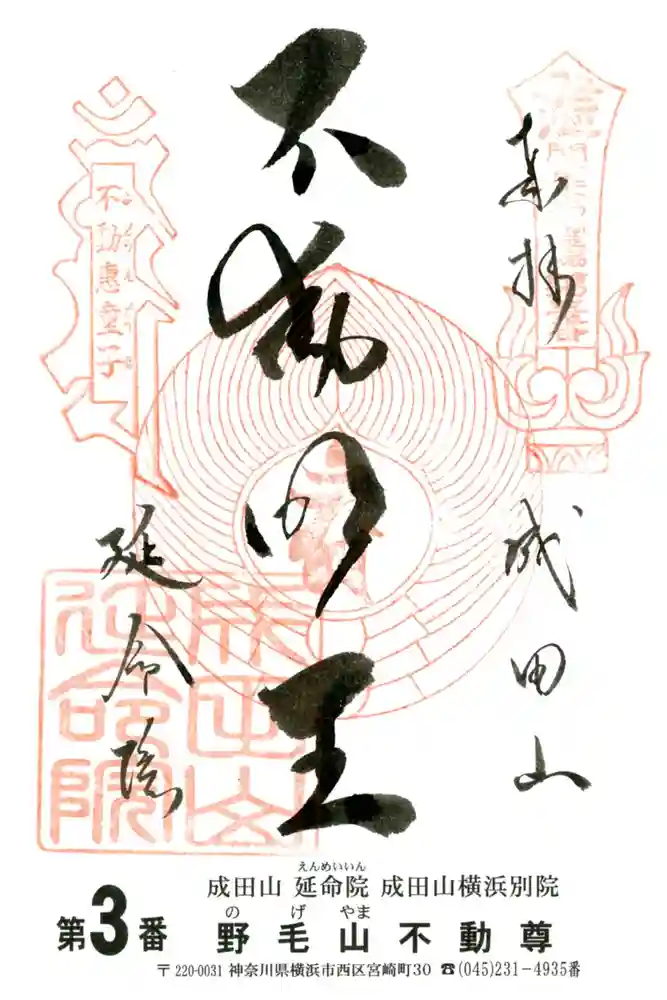 奉拝
成田山
不動明王
延命院
不動恵童子
成田山
延命院
えんめいいん
成田山 延命院 成田山横浜別院
の げ やま
第3番 野毛山不動尊
〒220-0031 神奈川県横浜市西区宮崎町30 ☎(045)231-4935番